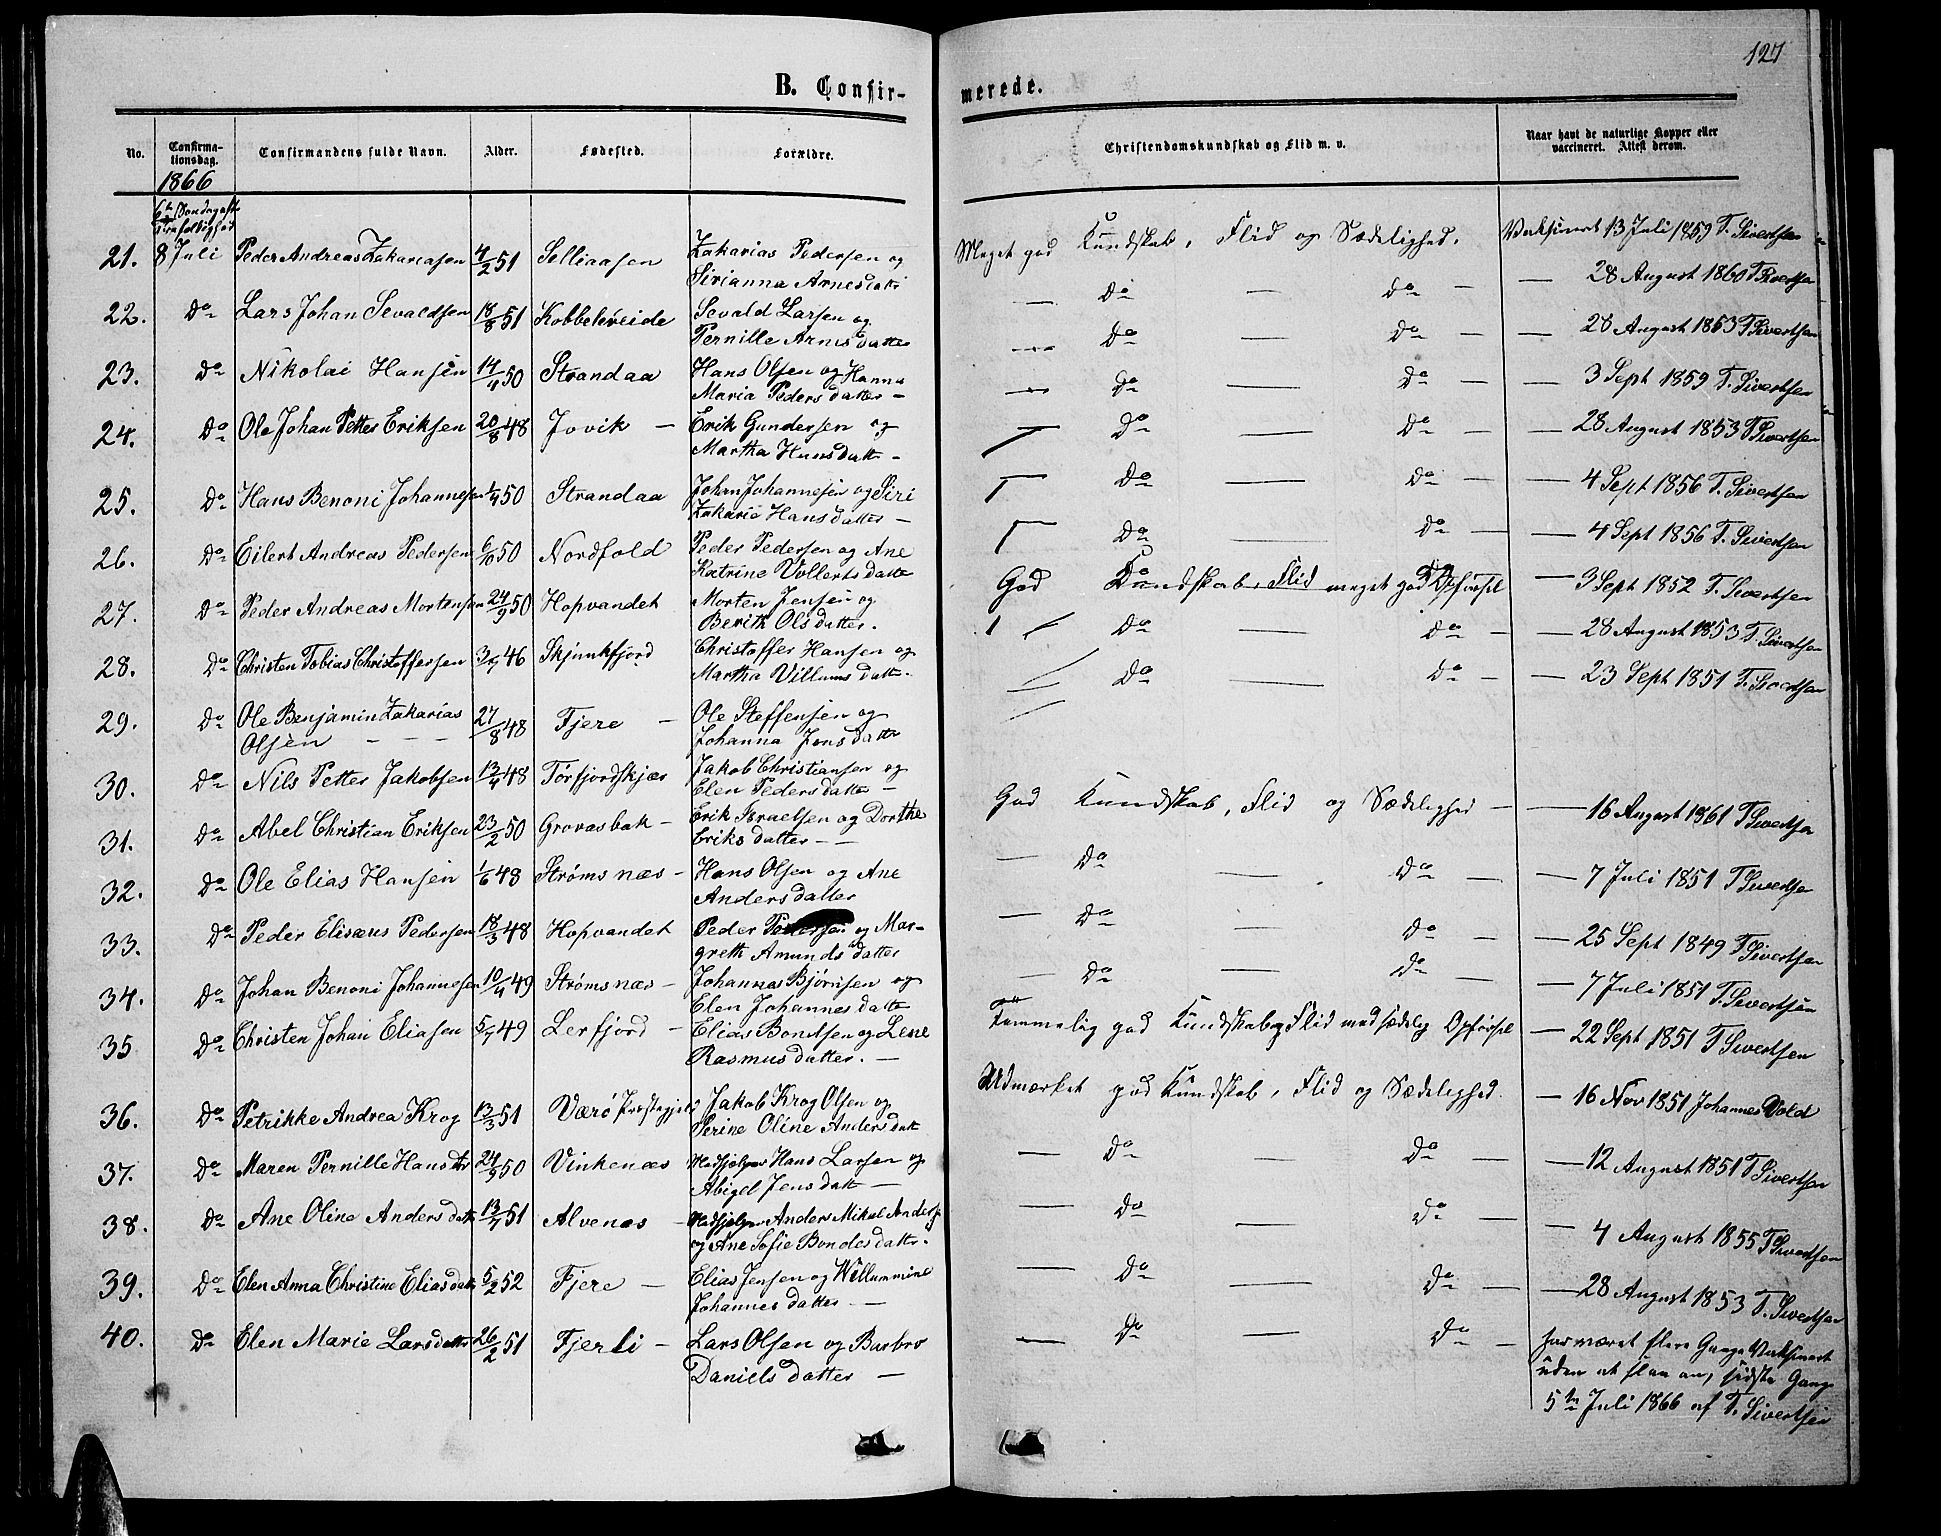 127
B. Confirmerede.
No. Confirmationsdag. Confirmandens fulde Navn. Alder. Fødested. Forældre. Christendomskundskab og Flid m. v. Naar havt de naturlige Kopper eller vaccineret. Attest derom.
1866
6te Søndag eft
Trefoldighed
21. 8 Juli Peder Andreas Zakariasen 4/2 51 Selliaasen Zakarias Pedersen og
Sirianna Arnesdatt
22. Do Lars Johan Sevaldsen 18/8 51 Kobbelveide Sevald Larsen og
Pernille Arnesdatter
23. Do Nikolai Hansen 14/4 50 Strandaa Hans Olsen og Hanna
Maria Pedersdatter -
24. Do Ole Johan Petter Eriksen 20/8 48 Jovik - Erik Gundersen og
Martha Hansdatt -
25. Do Hans Benoni Johannesen 1/4 50 Strandaa Johan Johannesen og Siri
Zakarie Hansdatter -
26. Do Eilert Andreas Pedersen 6/10 50 Nordfold Peder Pedersen og Ane
Katrine Vollertsdatter
27. Do Peder Andreas Mortensen 24/9 50 Hopvandet Morten Jensen og
Berith Olsdatter.
28. Do Christen Tobias Christoffersen 46 Skjunkfjord Christoffer Hansen og
Martha Villumsdatt.
29. Do Ole Benjamin Zakarias 27/8 48 Fjere - Ole Steffensen og
Olsen - - - Johanna Jensdatt
30. Do Nils Petter Jakobsen 13/4 48 Tørfjordskjær Jakob Christiansen og
Elen Pedersdatter -
31. Do Abel Christian Eriksen 23/2 50 Grovasbak - Erik Israelsen og Dorthe
Eriksdatter - -
32. Do Ole Elias Hansen 1/6 48 Strømsnæs - Hans Olsen og Ane
Andersdatter
33. Do Peder Elisæus Pedersen 18/3 48 Hopvandet Peder Pedersen og Mar-
greth Amundsdatter
34. Do Johan Benoni Johannesen 10/4 49 Strømsnæs - Johannes Bjørnsen og
Elen Johannesdatte
35 Do Christen Johan Eliasen 49 Lerfjord - Elias Bondsen og Lene
Rasmusdatter. -
36. Do Petrikke Andrea Krog 13/3 51 Værø Præstegjeld Jakob Krog Olsen og
Serine Oline Andersdatt
37. Do Maren Pernille Hansdtr 24/9 50 Vinkenæs Medhjelper Hans Larsen og
Abigel Jensdatt -
38. Do Ane Oline Andersdatt 13/7 51 Alvenæs - Medhjelper Anders Mikal Anders
og Ane Sofie Bondesdatter.
39. Do Elen Anna Christine Eliasdatt 5/2 52 Fjere - Elias Jensen og Willummine
Johannesdatter. -
40. Do Elen Marie Larsdatter 26/2 51 Fjerli - Lars Olsen og Barbro
Danielsdatter -
Meget god Kundskab, Flid og Sædelighed. Vaksineret 13 Juli 1859 T. Sivertsen
— Do — Do - — 28 August 1860 T Sivertsen
— Do — Do - — 28 August 1853 T Sivertsen
— Do — Do - — 3 Sept 1859 T. Sivertsen
— Do — Do - — 28 August 1853 T Sivertsen
— Do — Do - — 4 Sept 1856 T. Sivertsen
— Do — Do - — 4 Sept 1856 T. Sivertsen
God Kundskab, Flid meget god Opførsel — 3 Sept 1852 T. Sivertsen
Do — Do - — 28 August 1853 T Sivertsen
Do — Do - — 23 Sept 1851 T. Sivertsen
God Kundskab, Flid og Sædelighed - — 16 August 1861 T Sivertsen
— Do — Do - — 7 Juli 1851 T Sivertsen
— Do — Do - — 25 Sept 1849 T Sivertsen
— Do — Do - — 7 Juli 1851 T. Sivertsen
Temmelig god Kundskab og Flid med sædelig Opførsel — 22 Sept 1851 T Sivertsen
Udmærket god Kundskab, Flid og Sædelighed. — 16 Nov 1851 Johannes Vold
— Do — Do - — 12 August 1851 T Sivertsen
— Do — Do - — 4 August 1855 T Sivertsen
— Do — Do - — 28 August 1853 T. Sivertsen
— Do — Do - har været flere Gange Vaksineret
uden at slaa an, sidste Gang
5te Juli 1866 af T. Sivertsen